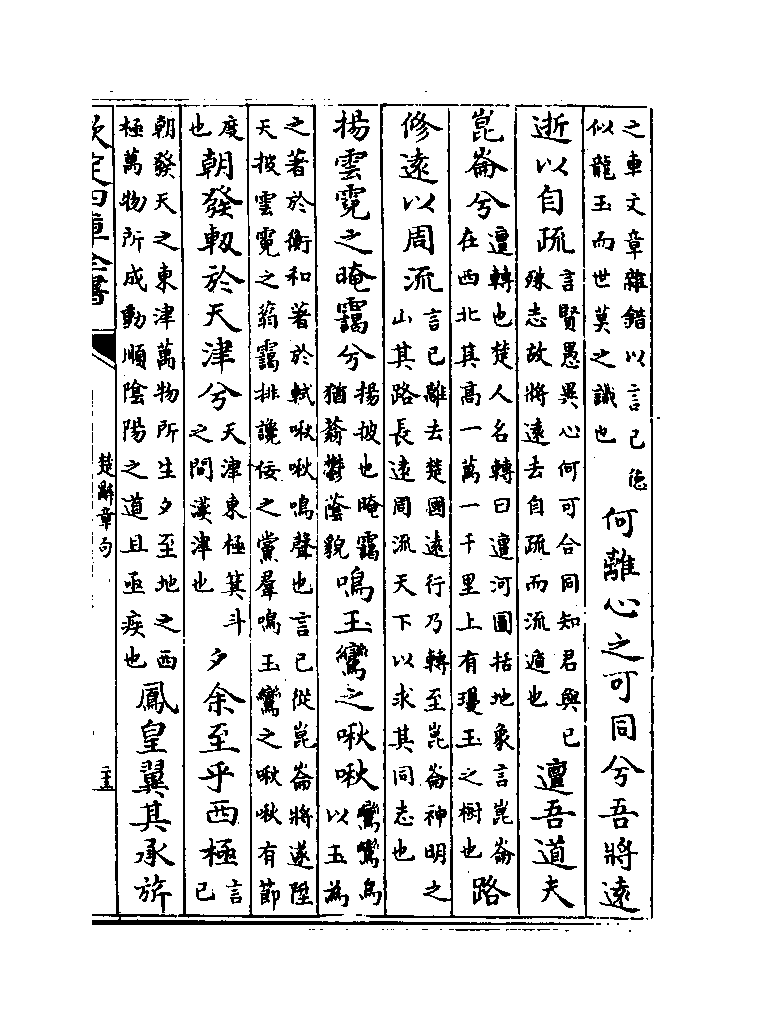 之車文章雜錯以言己德
似龍玉而世莫之識也
何離心之可同兮吾將遠
逝以自疏
言賢愚異心何可合同知君與己
殊志故將遠去自疏而流遁也
邅吾道夫
崑崙兮
邅轉也楚人名轉曰邅河圖括地象言崑崙
在西北其高一萬一千里上有瓊玉之樹也
路
修遠以周流
言己離去楚國遠行乃轉至崑崙神明之
山其路長遠周流天下以求其同志也
揚雲霓之晻靄兮
揚披也晻靄
猶蓊鬱蔭貌
鳴玉鸞之啾啾
鸞鸞鳥
以玉為
之著於衡和著於軾啾啾鳴聲也言己從崑崙將遂陞
天披雲霓之蓊靄排讒佞之黨羣鳴玉鸞之啾啾有節
度
也
朝發軔於天津兮
天津東極箕斗
之間漢津也
夕余至乎西極
言
己
朝發天之東津萬物所生夕至地之西
極萬物所成動順陰陽之道且亟疾也
鳳皇翼其承旂
欽定四庫全書
楚辭章句